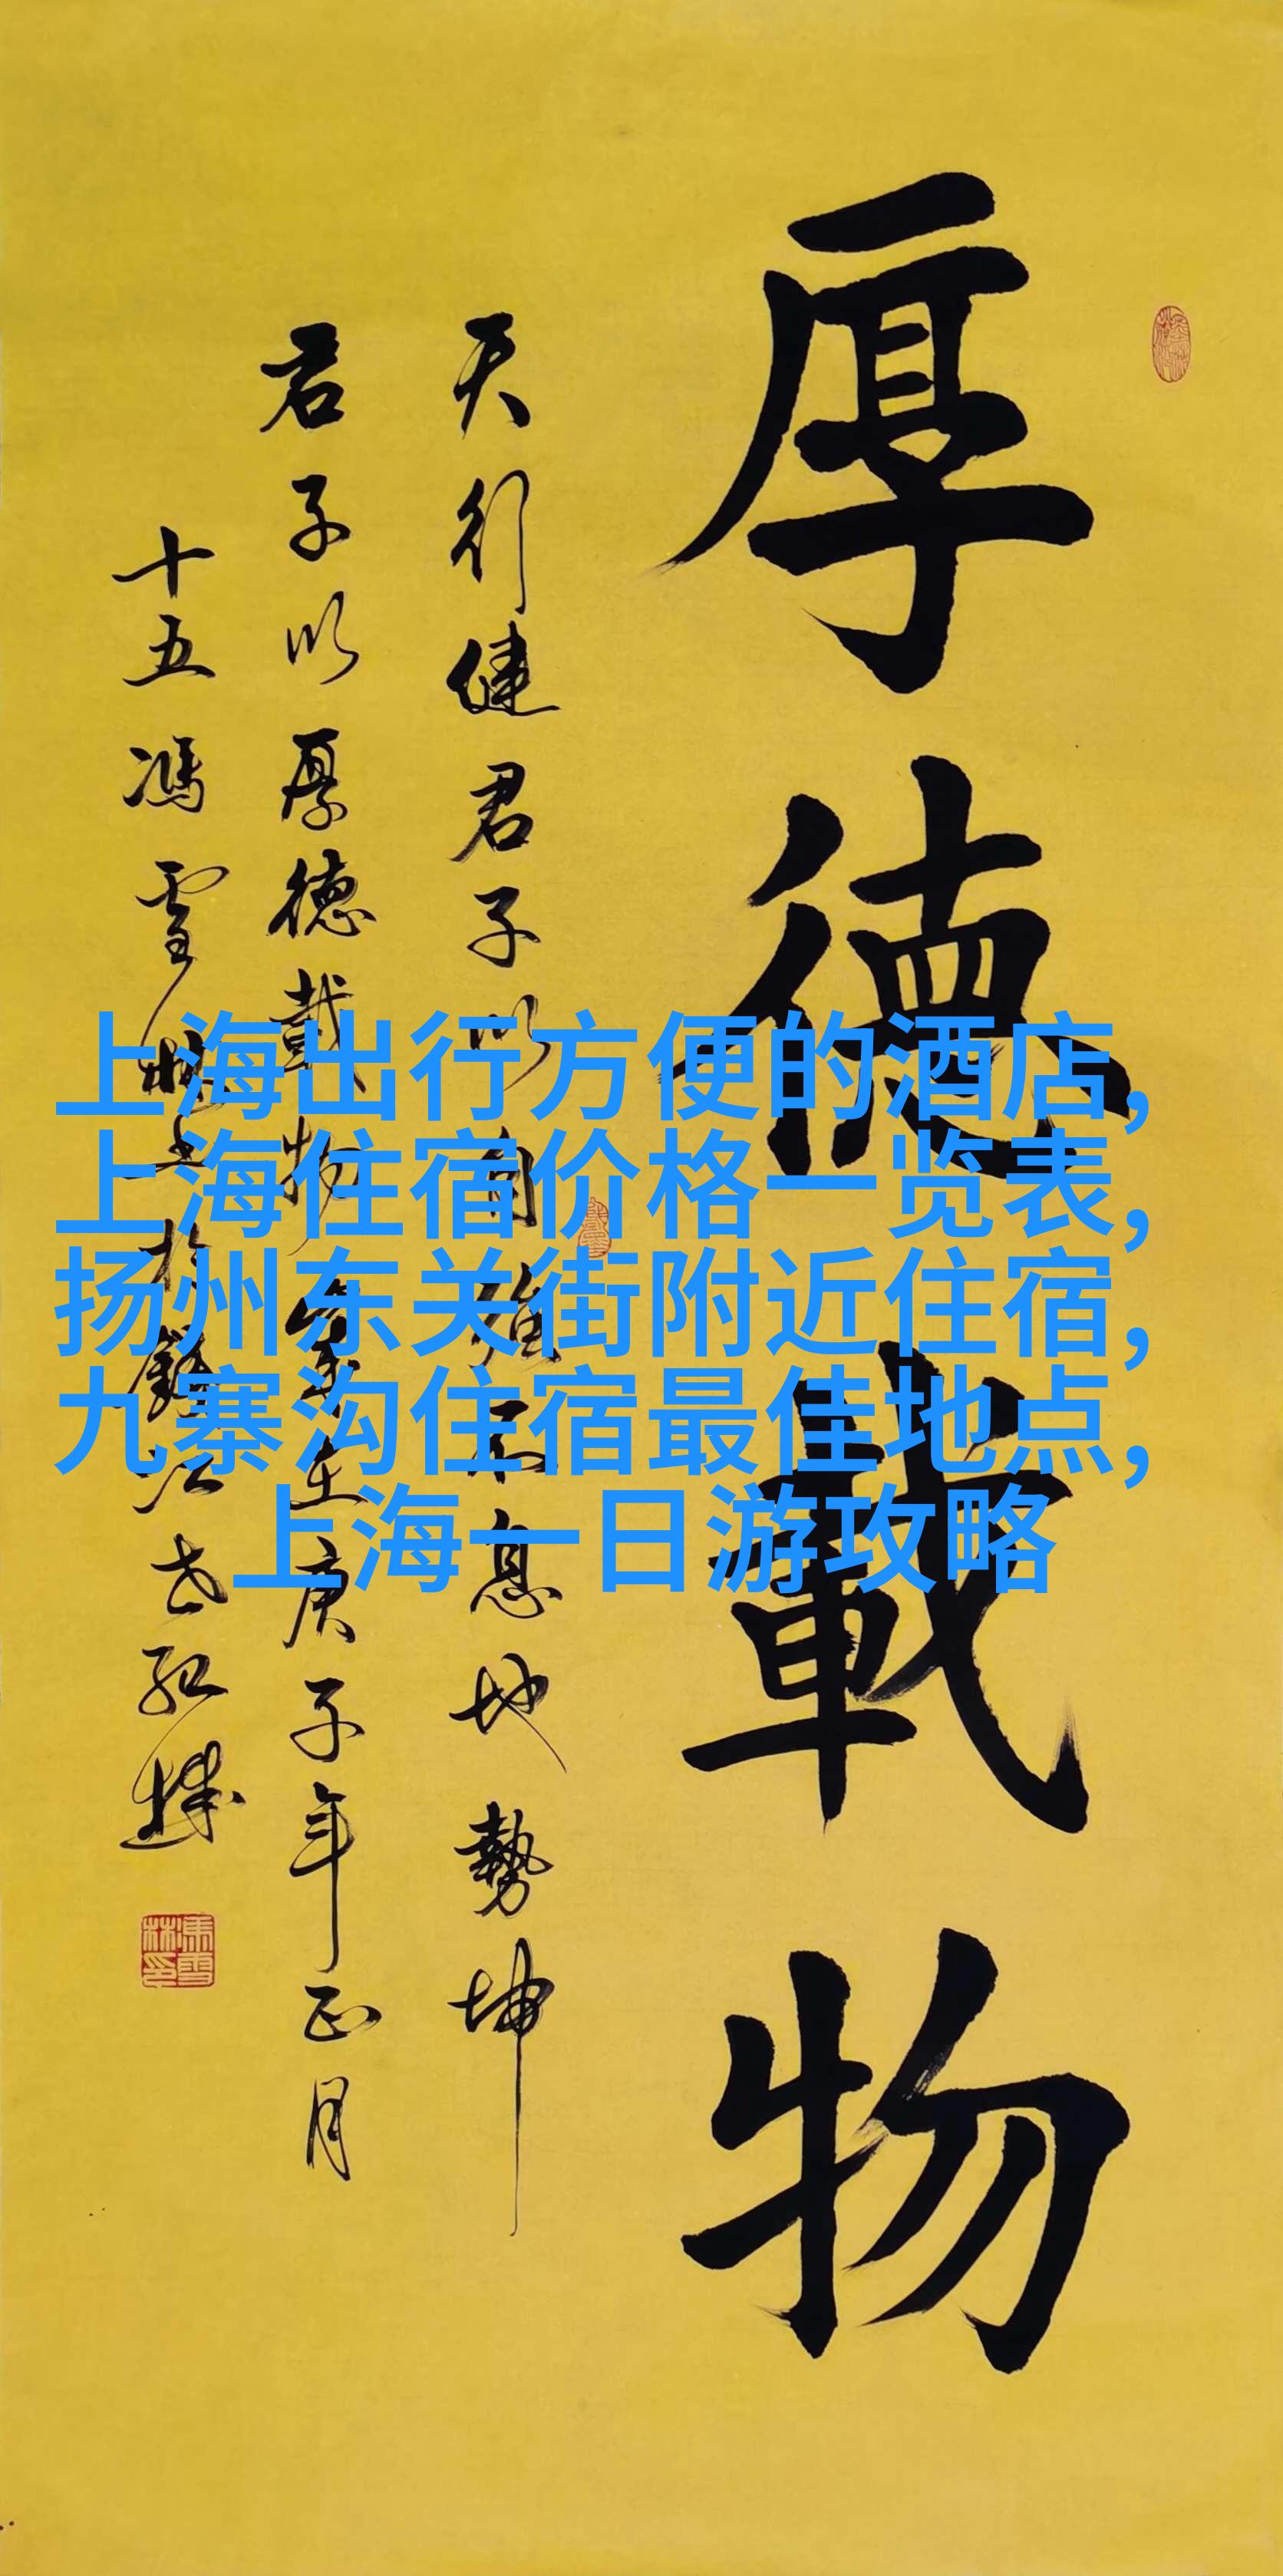 厚德載物
天行健君子以自強不息地勢坤
君子以厚德載物 歲在庚子年正月
十五馮雪林書於
上海出行方便的酒店,
上海住宿价格一览表,
扬州东关街附近住宿,
九寨沟住宿最佳地点,
上海一日游攻略
馮雪林印